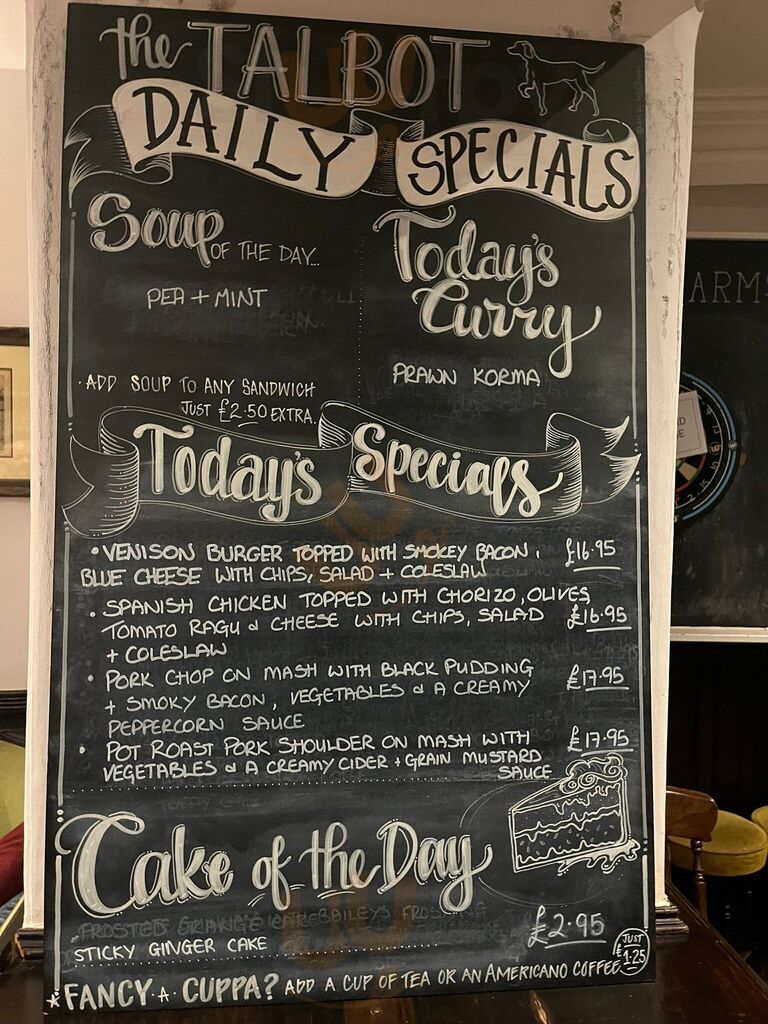 the TALBOT
DAILY SPECIALS
Soup OF THE DAY...
PEA + MINT
· ADD SOUP TO ANY SANDWICH
JUST £2·50 EXTRA.
Today's
Curry
PRAWN KORMA
Today's Specials
• VENISON BURGER TOPPED WITH SMOKEY BACON, £16.95
BLUE CHEESE WITH CHIPS, SALAD + COLESLAW
• SPANISH CHICKEN TOPPED WITH CHORIZO, OLIVES,
TOMATO RAGU & CHEESE WITH CHIPS, SALAD £16.95
+ COLESLAW
• PORK CHOP ON MASH WITH BLACK PUDDING £17.95
+ SMOKY BACON, VEGETABLES & A CREAMY
PEPPERCORN SAUCE
• POT ROAST PORK SHOULDER ON MASH WITH £17.95
VEGETABLES & A CREAMY CIDER + GRAIN MUSTARD
SAUCE
Cake of the Day
STICKY GINGER CAKE £2.95
*FANCY·A·CUPPA? ADD A CUP OF TEA OR AN AMERICANO COFFEE JUST £1·25
ARMS